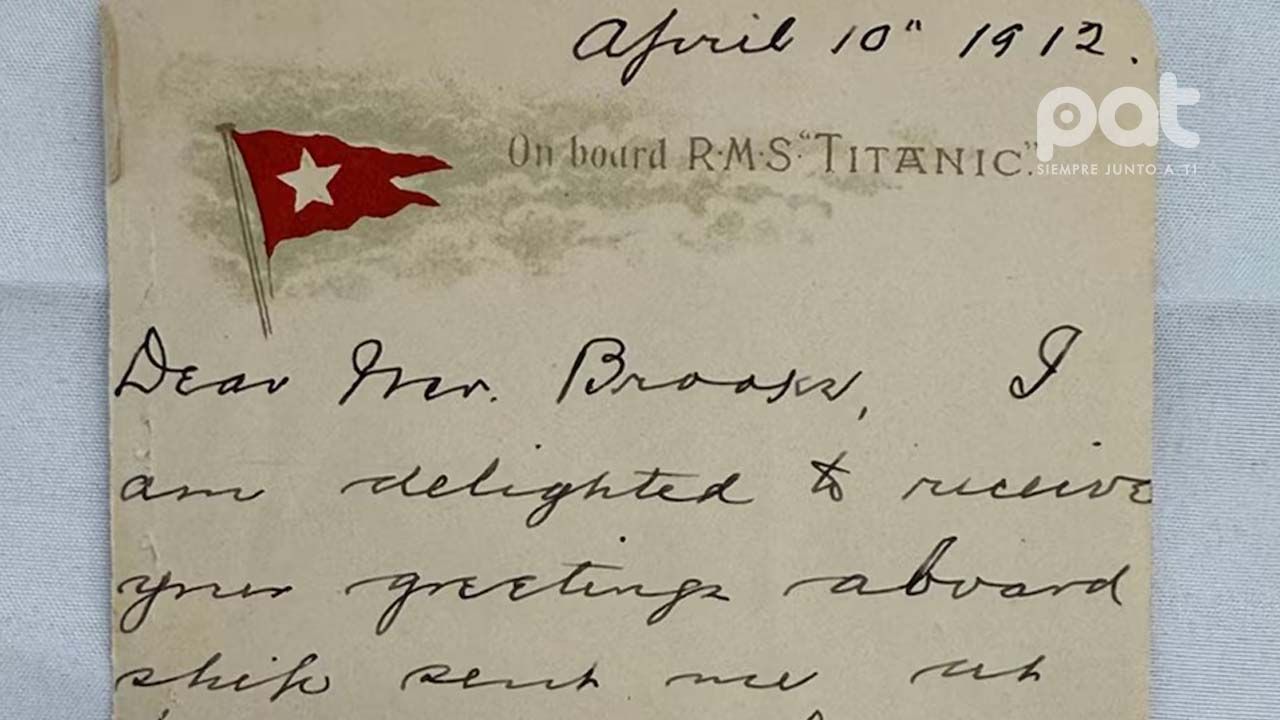 April 10" 1912.
pat
SIEMPRE JUNTO A TI
On board R·M·S·"TITANIC."
Dear Mr. Brooks, I
am delighted to receive
your greetings aboard
ship sent me at